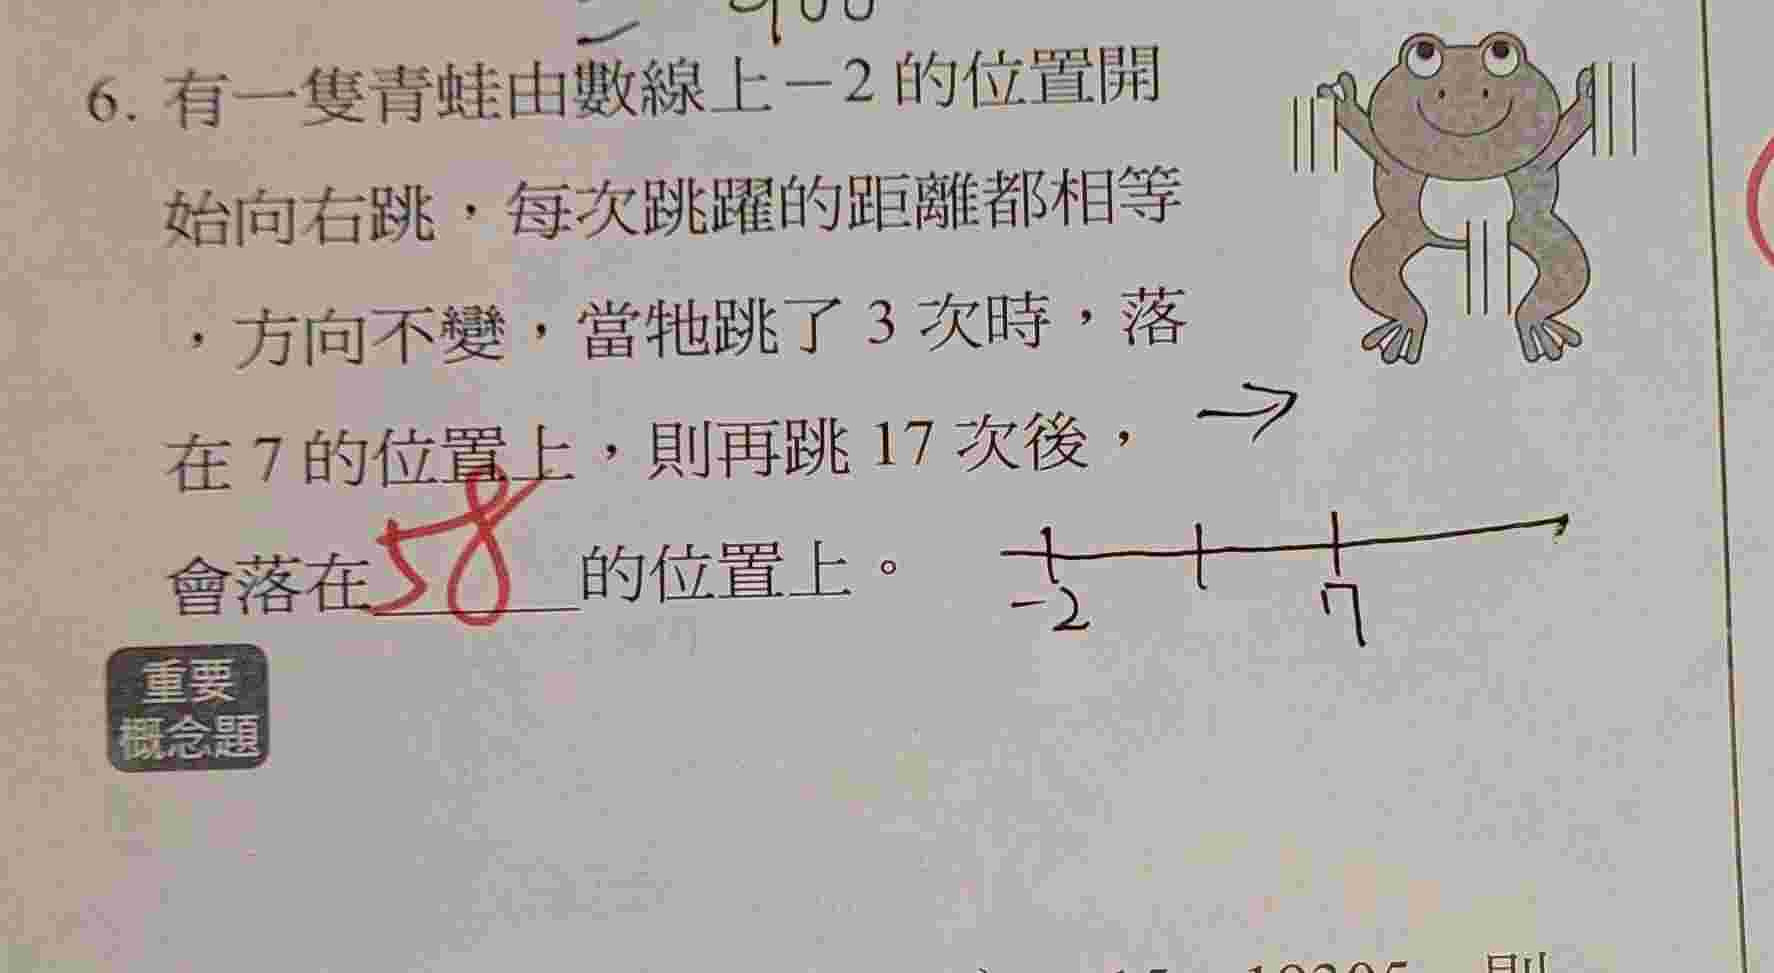 = 900
6. 有一隻青蛙由數線上－2 的位置開
始向右跳，每次跳躍的距離都相等
，方向不變，當牠跳了 3 次時，落
在 7 的位置上，則再跳 17 次後，
會落在58的位置上。
→
-2 7
重要
概念題
則